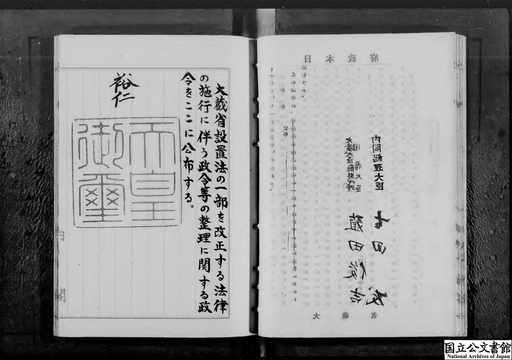 大蔵省設置法の一部を改正する法律
の施行に伴う政令等の整理に関する政
令をここに公布する。
裕仁
天皇
御璽
日本政府
内閣総理大臣
吉田茂
殖田俊吉
大蔵省
国立公文書館
National Archives of Japan